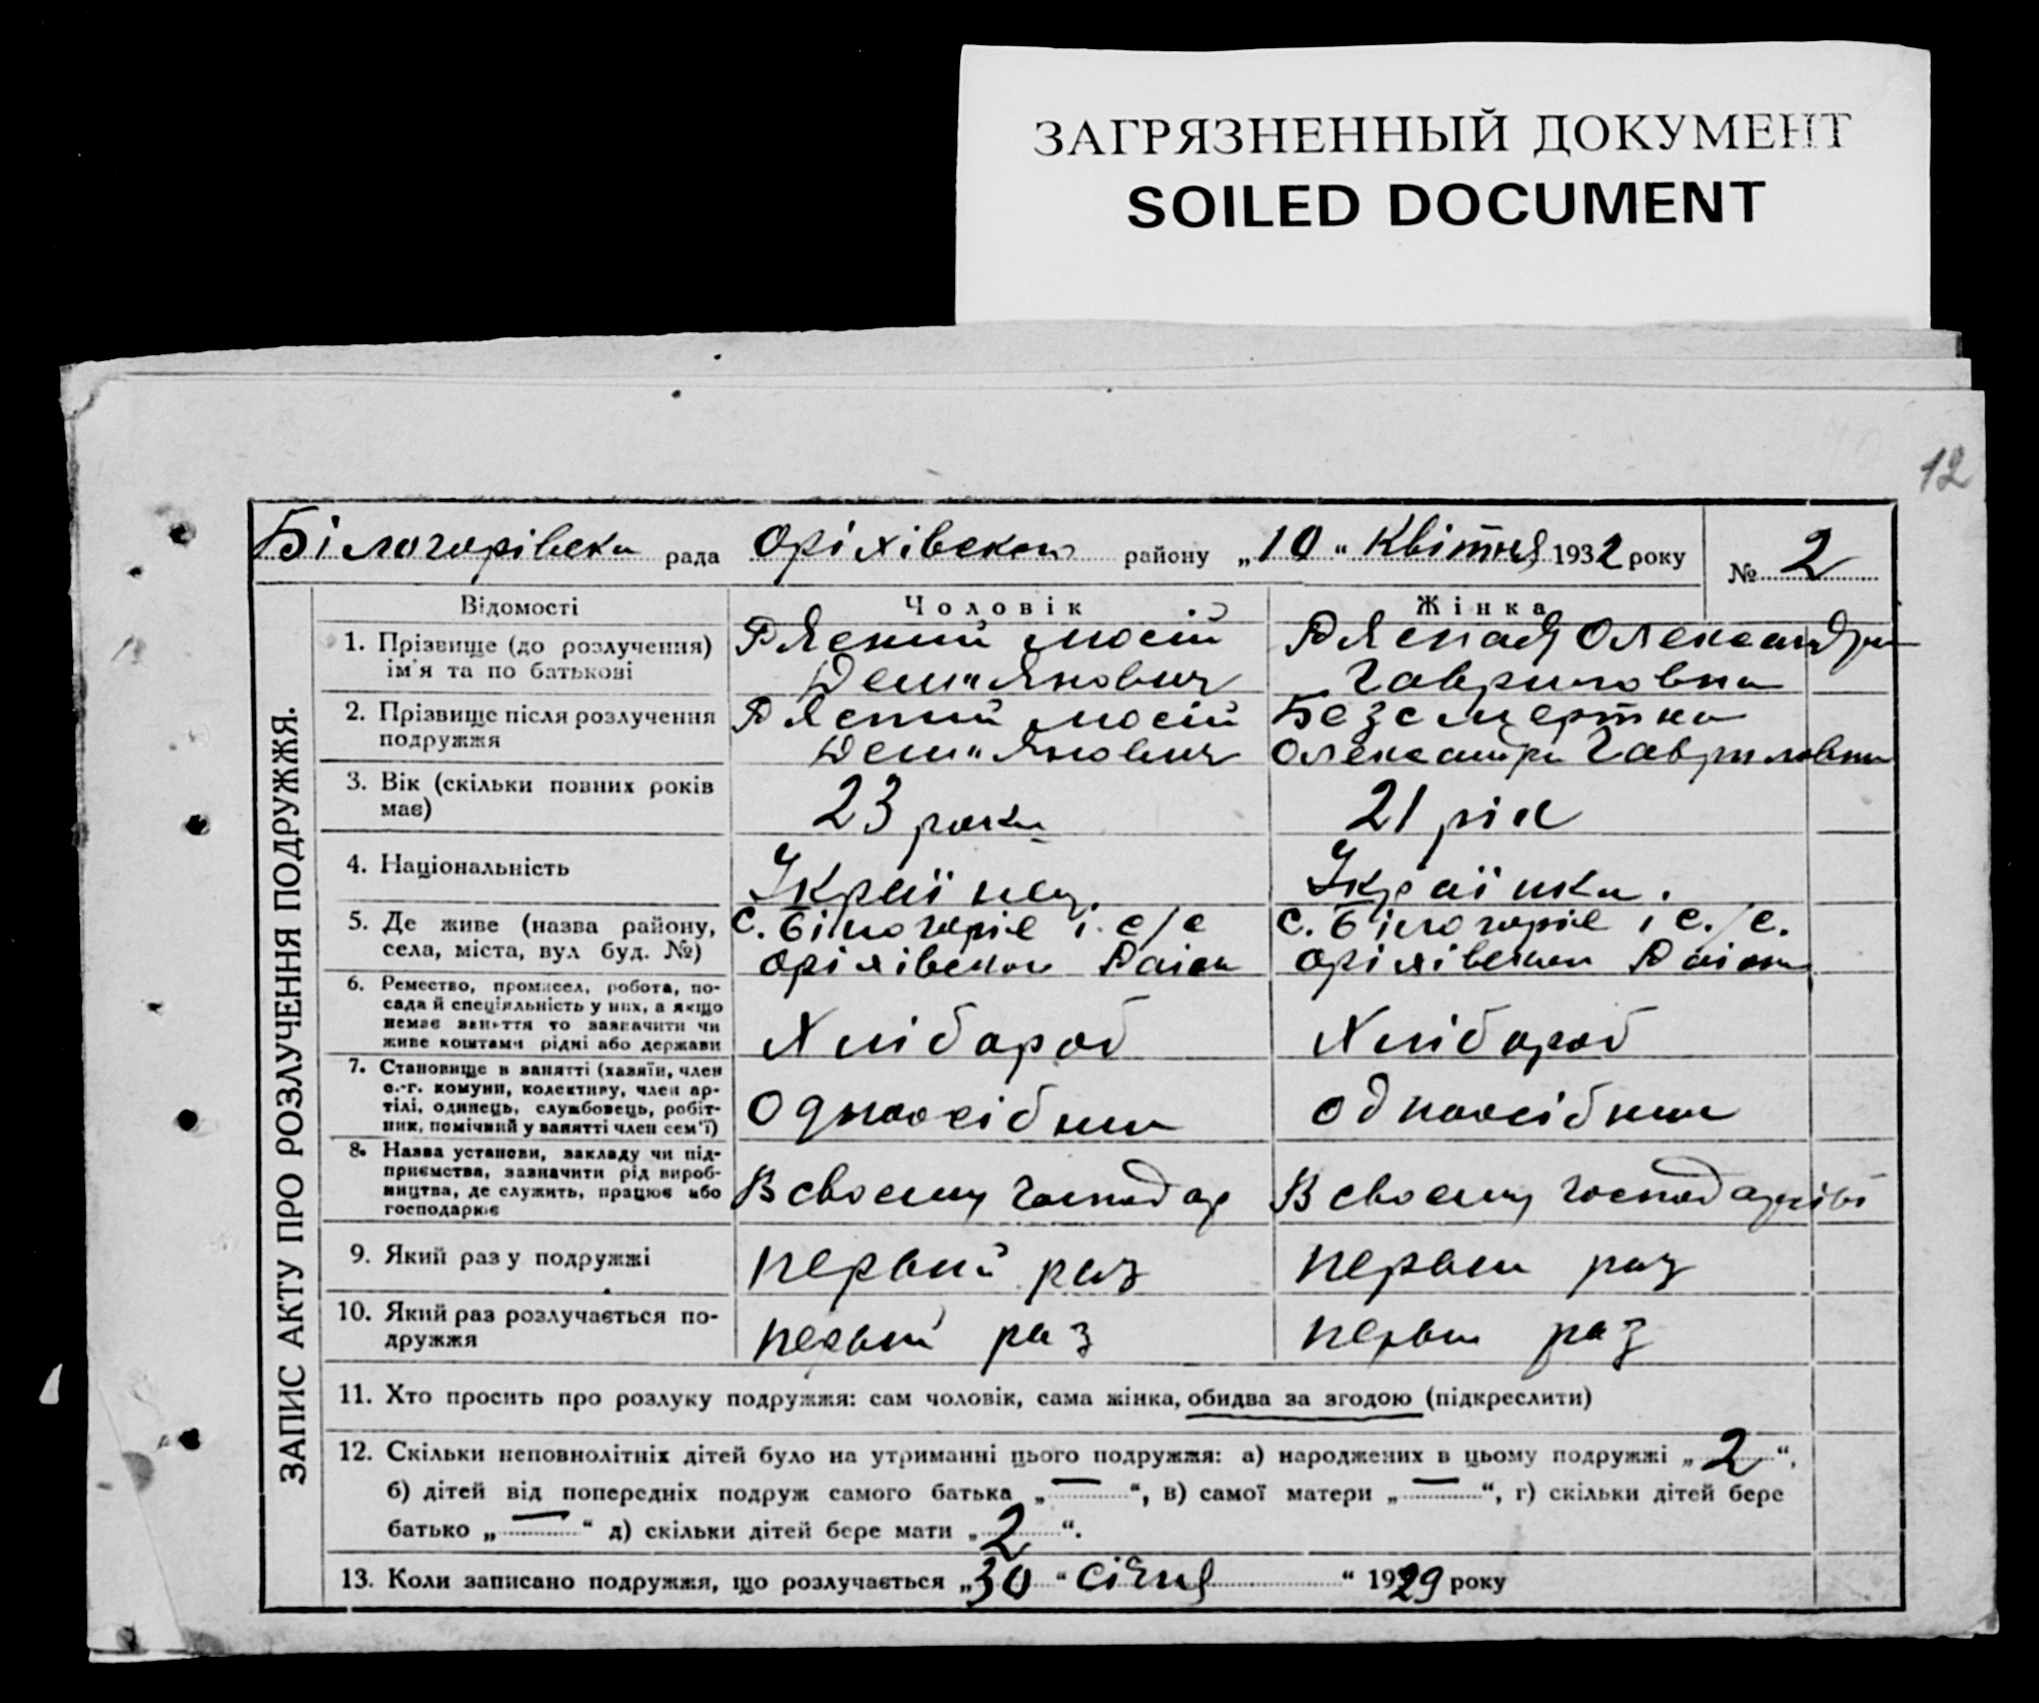 ЗАГРЯЗНЕННЫЙ ДОКУМЕНТ
SOILED DOCUMENT
12
Білогорівска рада Оріхівского району „10“ Квітня 1932 року № 2
ЗАПИС АКТУ ПРО РОЗЛУЧЕННЯ ПОДРУЖЖЯ.
Відомості Чоловік Жінка
1. Прізвище (до розлучення) Мосій Олександра
ім'я та по батькові Демянович Гавриловна
2. Прізвище після розлучення Мосій Безсмертна
подружжя Демянович Олександра Гавриловна
3. Вік (скільки повних років 23 роки 21 рік
має)
4. Національність Українец. Українка.
5. Де живе (назва району, С. Білогоріе і с/с С. Білогоріе і с./с.
села, міста, вул буд. №) Оріхівского Раіону Оріхівского Раіону
6. Ремество, промисел, робота, по-
сада й спеціяльність у них, а якщо
немає заняття то зазначити чи Хлібороб Хлібороб
живе коштами рідні або держави
7. Становище в занятті (хазяїн, член
с.-г. комуни, колективу, член ар-
тілі, одинець, службовець, робіт- Одноосібник одноосібник
ник, помічний у занятті член сем'ї)
8. Назва установи, закладу чи під-
приємства, зазначити рід вироб-
ництва, де служить, працює або В своему господар В своему господарстві
господарює
9. Який раз у подружжі первий раз первий раз
10. Який раз розлучається по- первий раз первий раз
дружжя
11. Хто просить про розлуку подружжя: сам чоловік, сама жінка, обидва за згодою (підкреслити)
12. Скільки неповнолітніх дітей було на утриманні цього подружжя: а) народжених в цьому подружжі „2“,
б) дітей від попередніх подруж самого батька „—“, в) самої матери „—“, г) скільки дітей бере
батько „—“ д) скільки дітей бере мати „2“.
13. Коли записано подружжя, що розлучається „30“ січня “ 1929 року